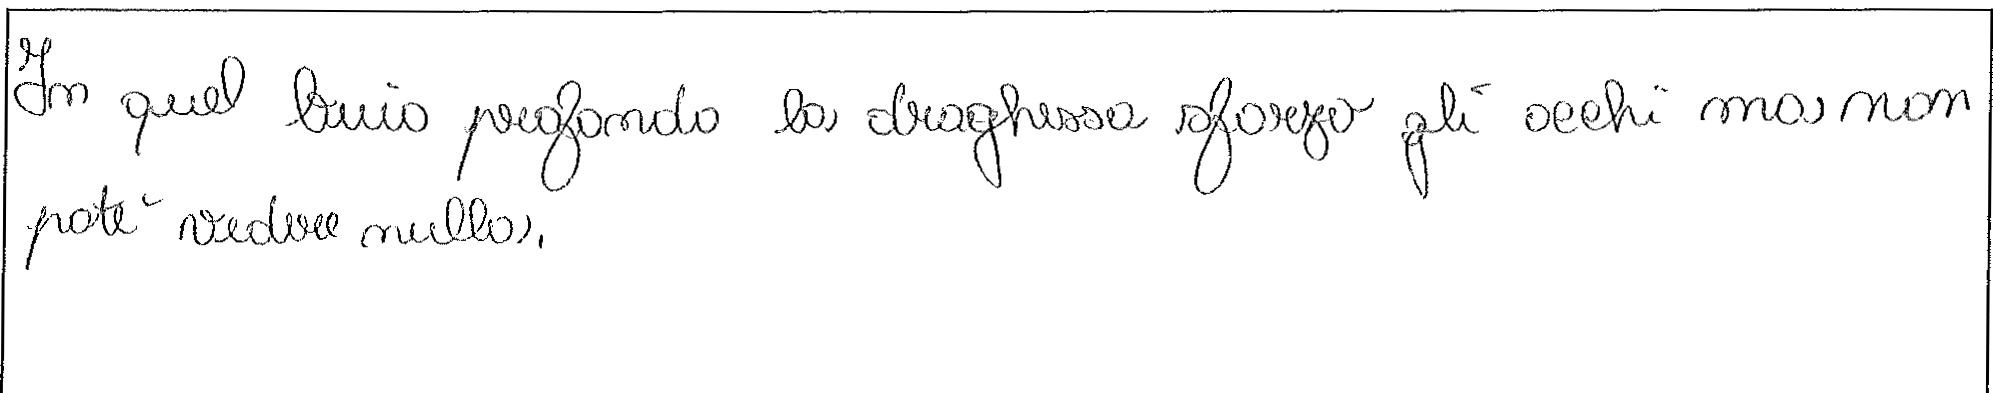 In quel buio profondo la draghessa sforzo gli occhi ma non
poté vedere nulla.